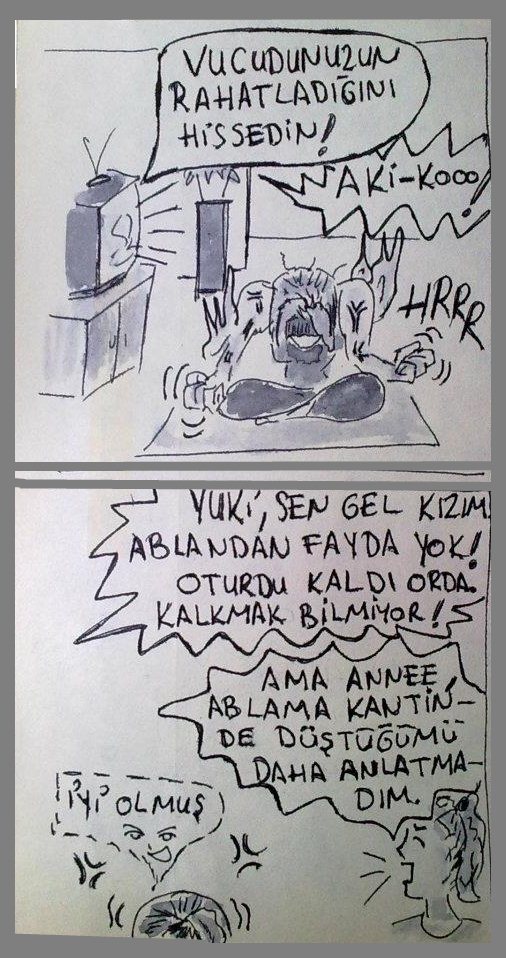 VUCUDUNUZUN
RAHATLADIĞINI
HİSSEDİN!
AKİ-KOOO!
HRRR
YUKİ, SEN GEL KIZIM.
ABLANDAN FAYDA YOK!
OTURDU KALDI ORDA.
KALKMAK BİLMİYOR!
AMA ANNEE,
ABLAMA KANTİN-
DE DÜŞTÜĞÜMÜ
DAHA ANLATMA-
DIM.
İYİ OLMUŞ